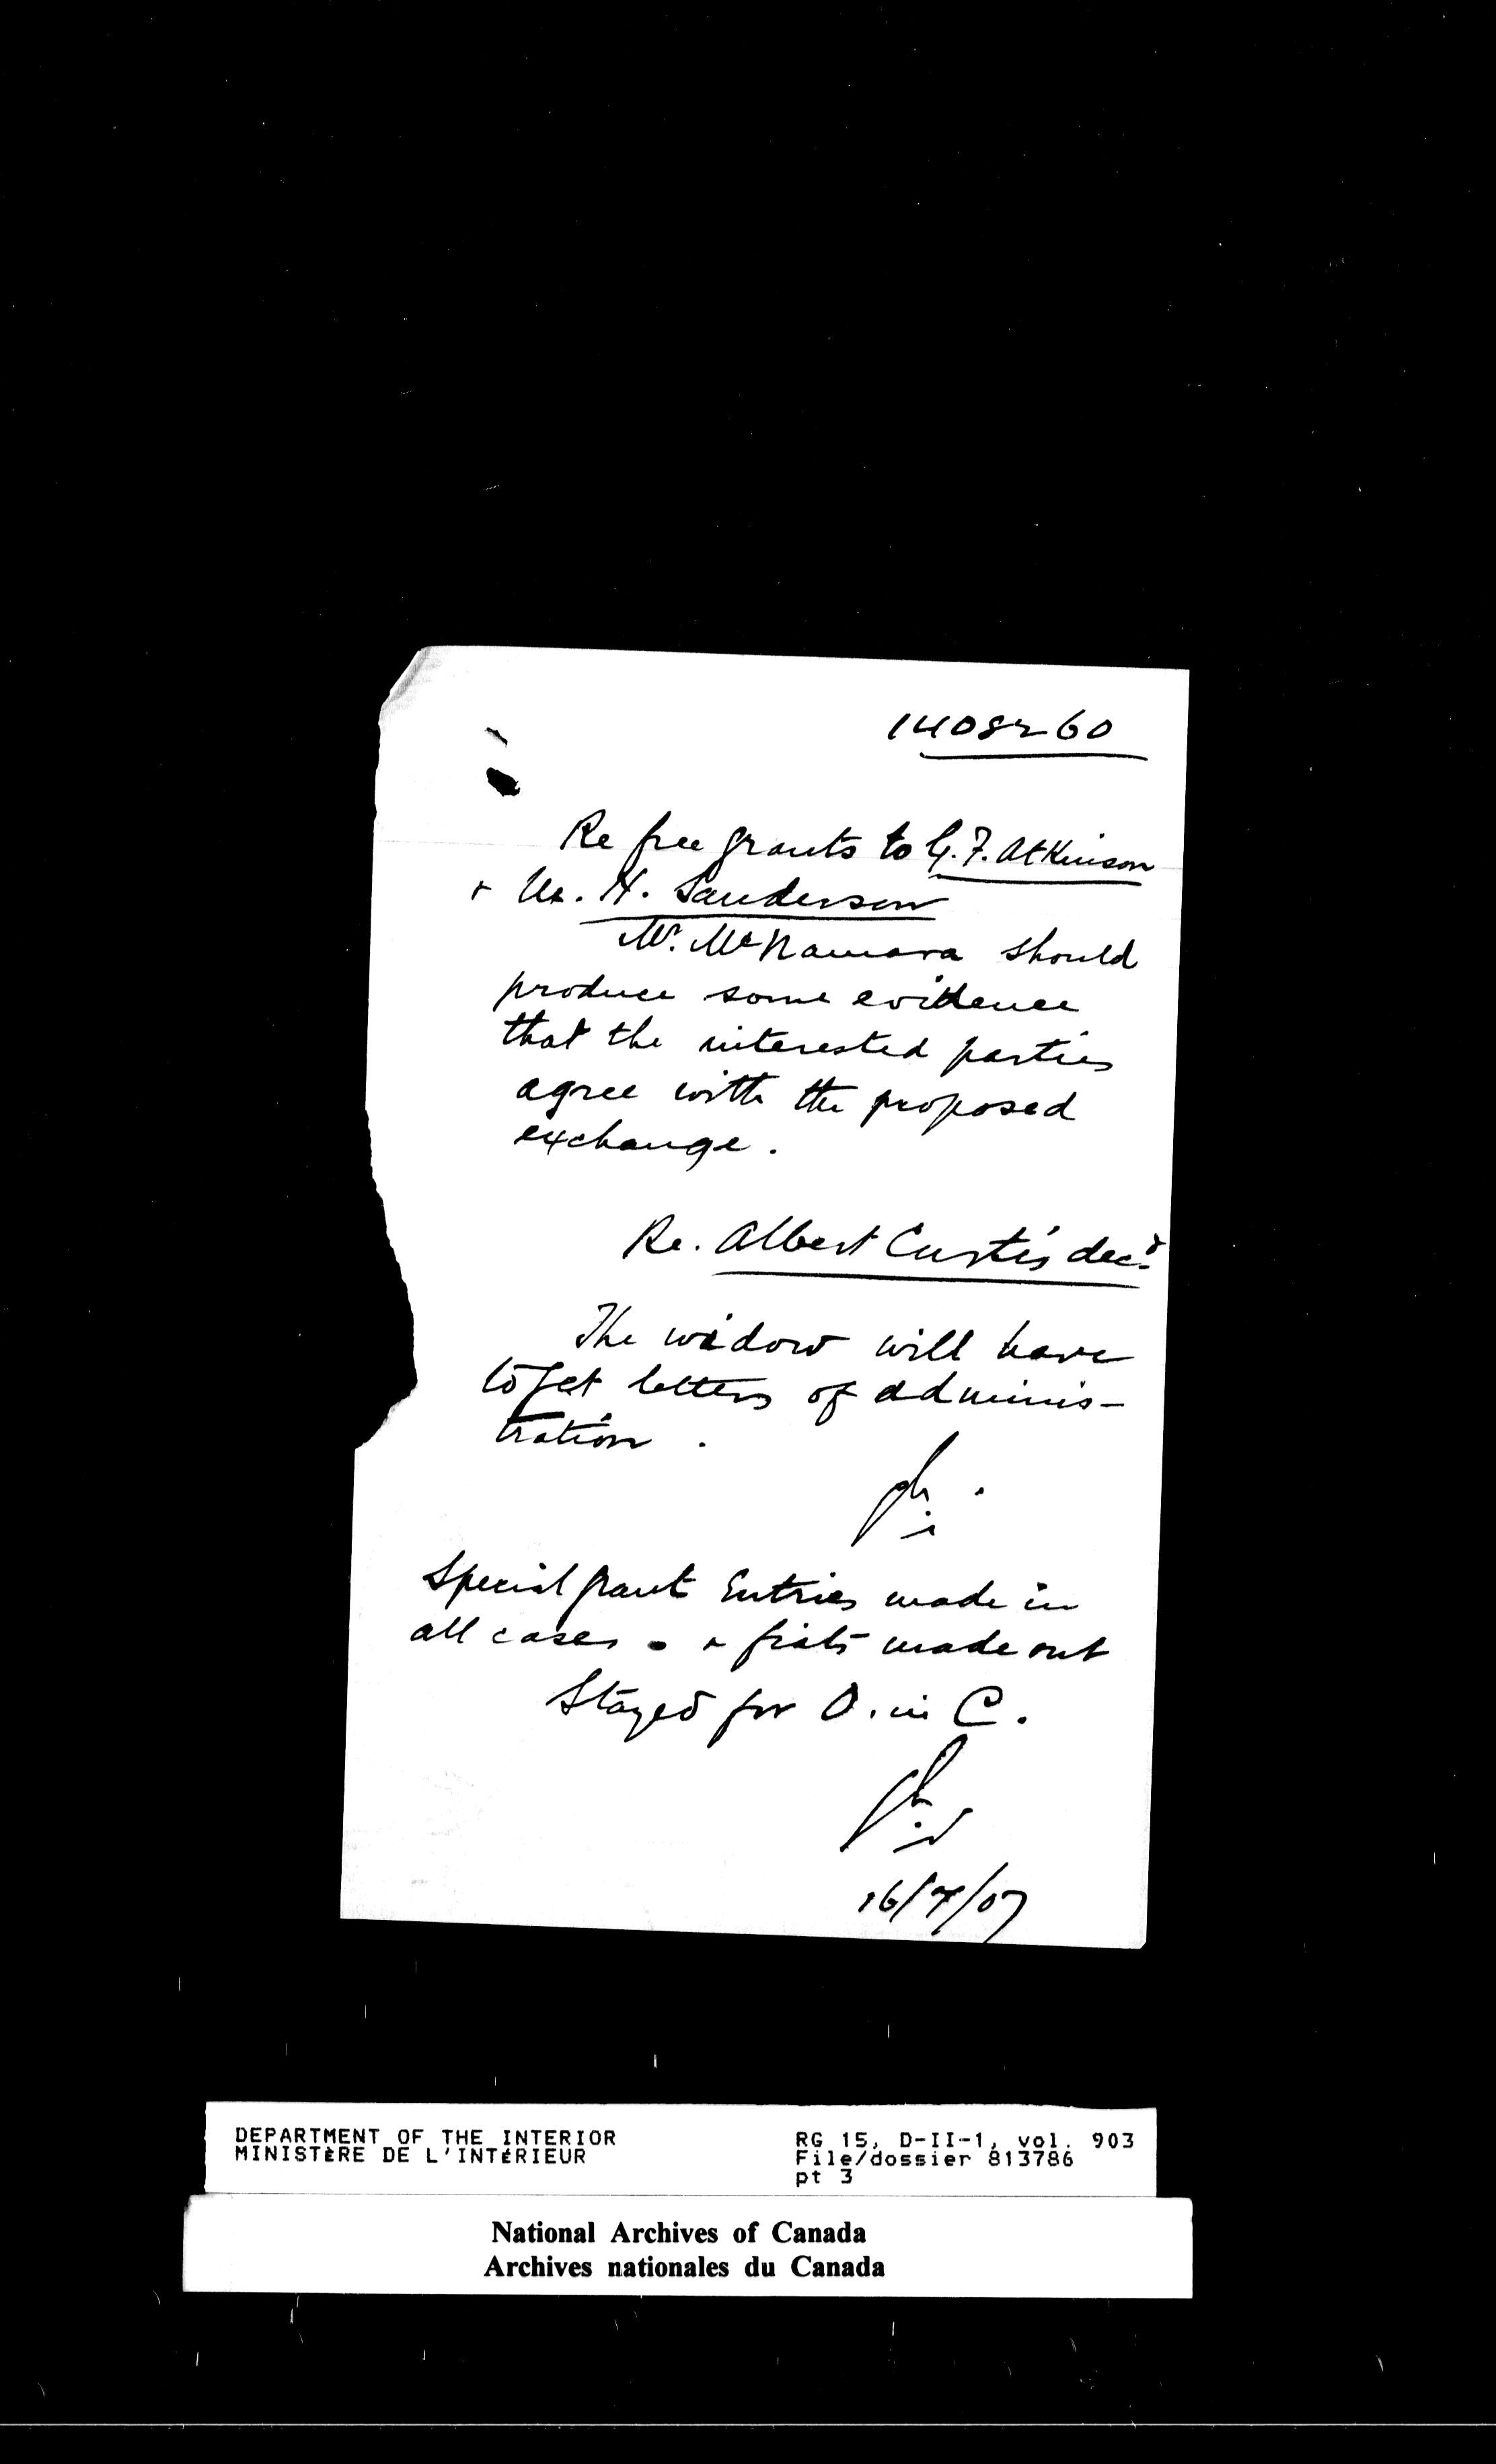 1408260
Re free grants to G. F. Atkinson
+ W. H. Sanderson
Mr. McNamara should
produce some evidence
that the interested parties
agree with the proposed
exchange.
Re. Albert Curtis dec.d
The widow will have
to get letters of adminis-
tration.
Special grant Entries made in
all cases. & fiats made out
Stayed for O. in C.
16/7/07
DEPARTMENT OF THE INTERIOR
MINISTÈRE DE L'INTÉRIEUR
RG 15, D-II-1, vol. 903
File/dossier 813786
pt 3
National Archives of Canada
Archives nationales du Canada